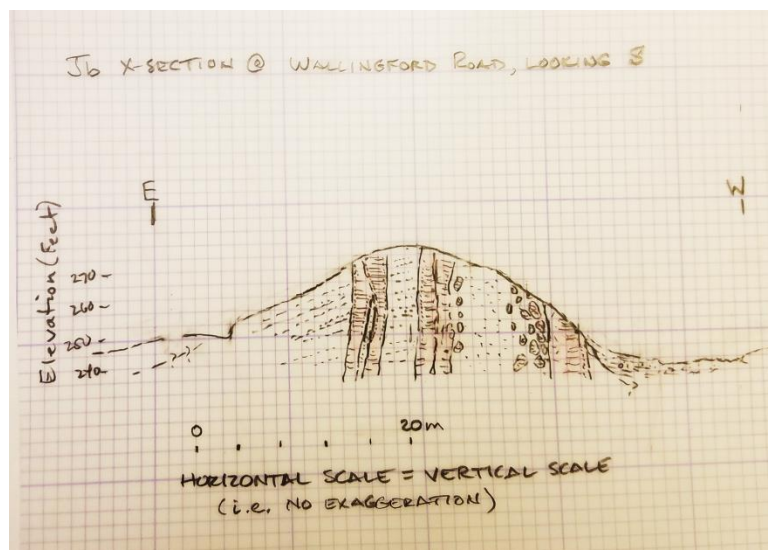 Jb X-SECTION @ WALLINGFORD ROAD, LOOKING S
E
W
Elevation (Feet)
270
260
250
240
?
?
0
20m
HORIZONTAL SCALE = VERTICAL SCALE
(i.e. NO EXAGGERATION)